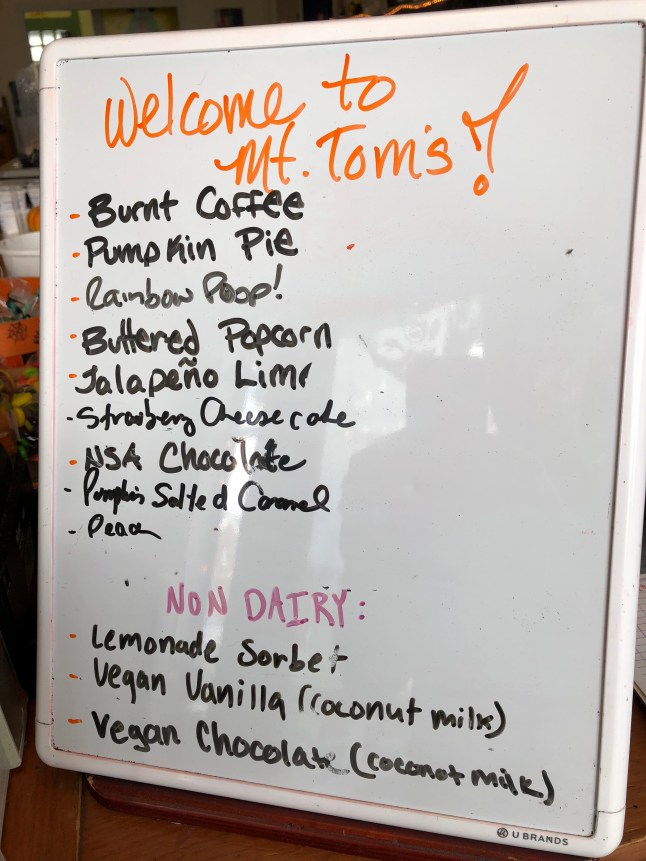 Welcome to
Mt. Tom's!
- Burnt Coffee
- Pumpkin Pie
- Rainbow Poop!
- Buttered Popcorn
- Jalapeño Lime
- Strawberry Cheesecake
- NSA Chocolate
- Pumpkin Salted Caramel
- Peach
NON DAIRY:
- Lemonade Sorbet
- Vegan Vanilla (coconut milk)
- Vegan Chocolate (coconut milk)
U BRANDS